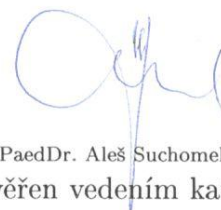 PaedDr. Aleš Suchomel
věřen vedením ka